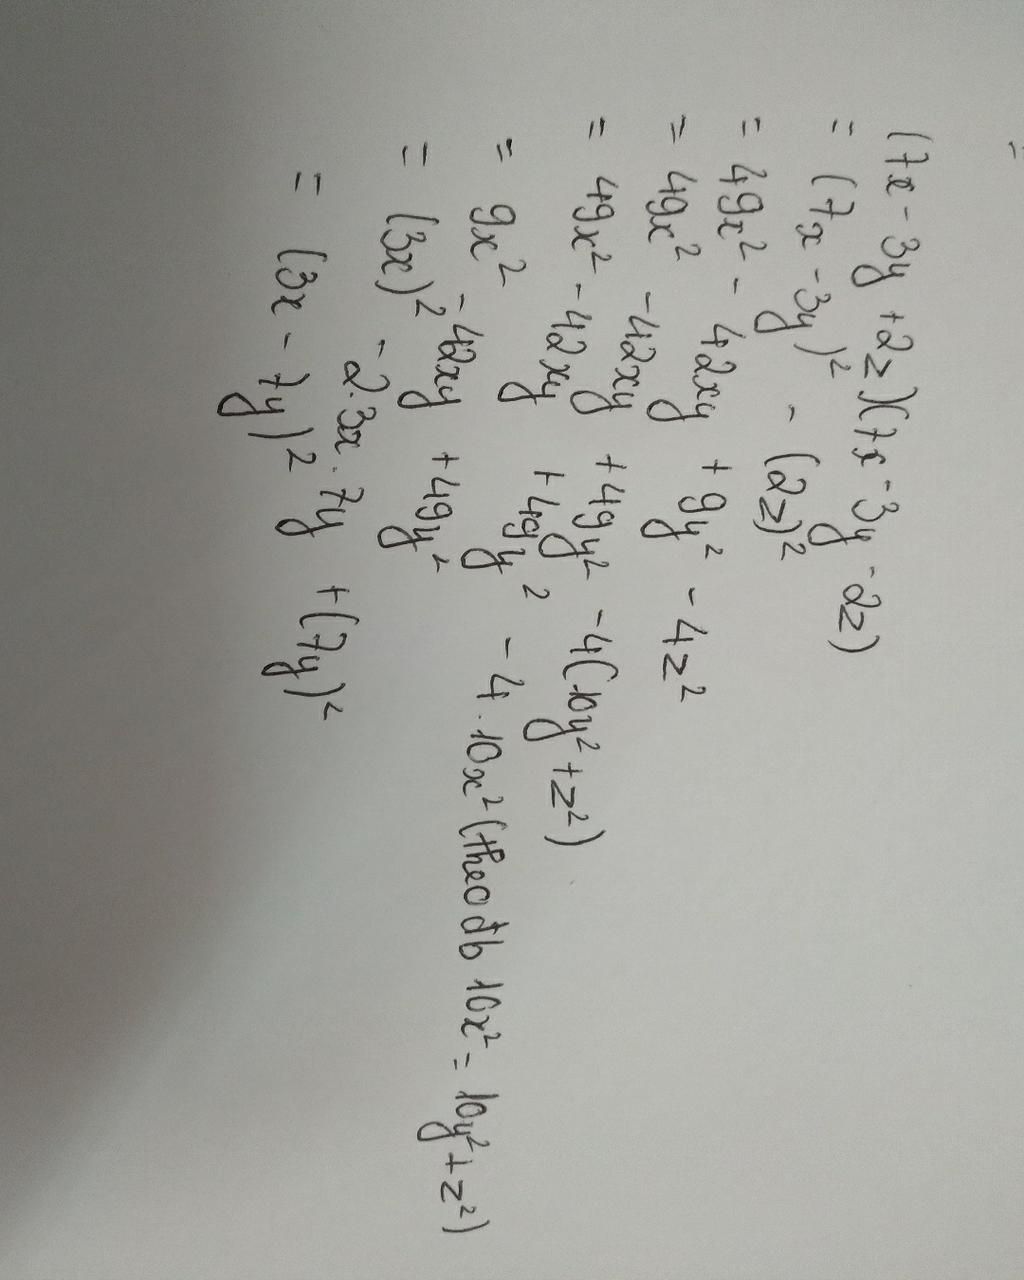 =
(7x - 3y + 2z)(7x - 3y - 2z)
= (7x - 3y)² - (2z)²
= 49x² - 42xy + 9y² - 4z²
= 49x² - 42xy + 49y² - 4(10y² + z²)
= 49x² - 42xy + 49y² - 4 . 10x² (theo đb 10x² = 10y² + z²)
= 9x² - 42xy + 49y²
= (3x)² - 2.3x.7y + (7y)²
= (3x - 7y)²